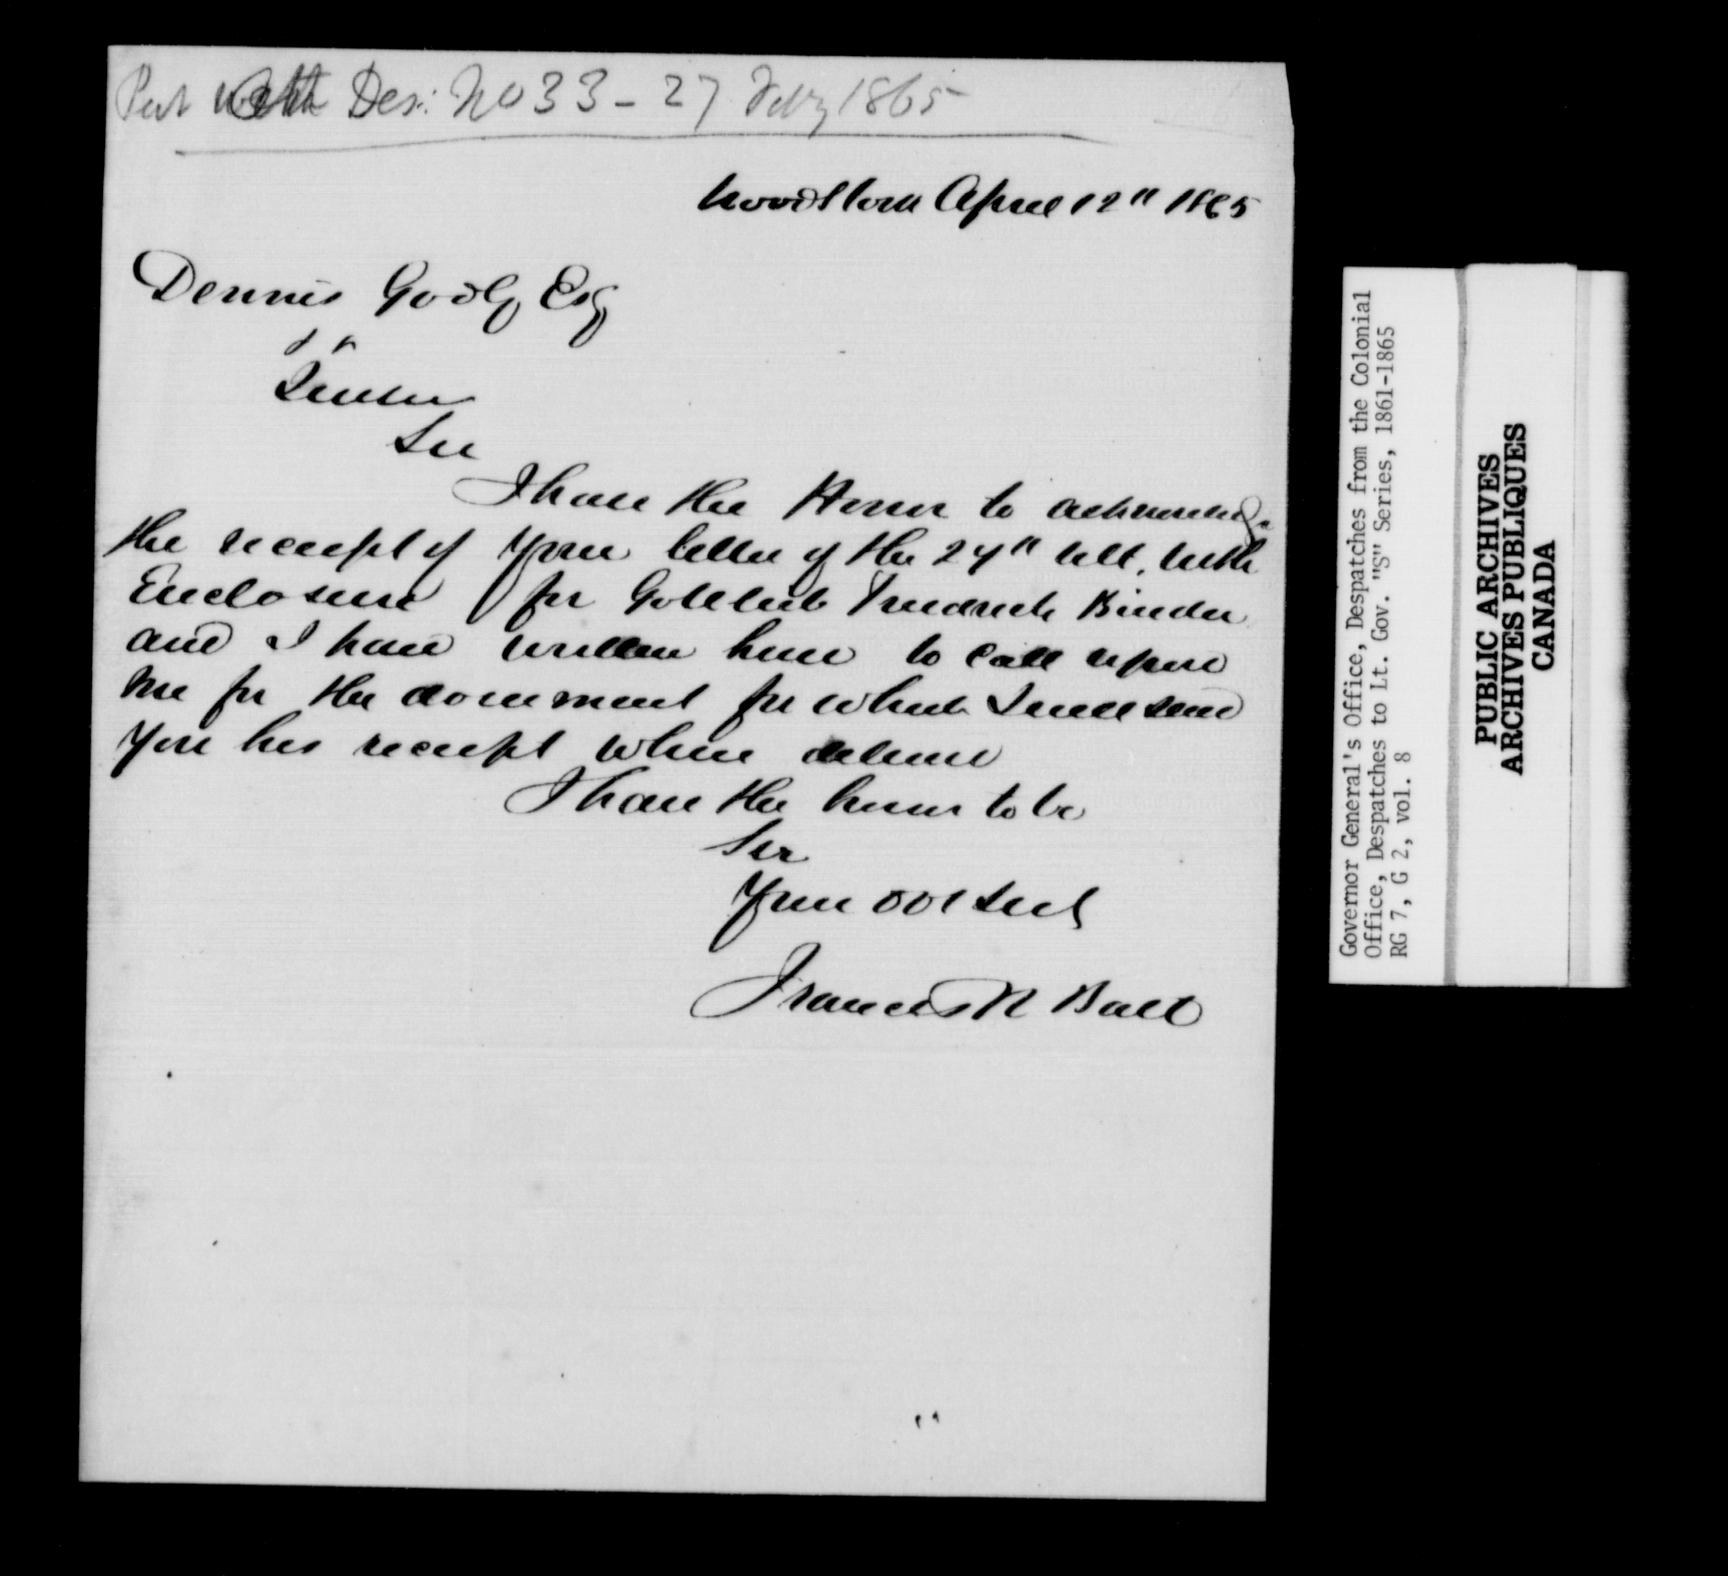 Put with Des: No 33 - 27 Feby 1865
Woodstock April 12" 1865
Dennis Godly Esq
Quebec
Sir
I have the Honor to acknowledge
the receipt of your letter of the 27" Ult. with
Enclosure for Gottlieb Frederick Binder
and I have written him to call upon
me for the document for which I will send
you his receipt when
I have the honor to be
Sir
Your obt Servt
Francis R Ball
Governor General's Office, Despatches from the Colonial
Office, Despatches to Lt. Gov. "S" Series, 1861-1865
RG 7, G 2, vol. 8
PUBLIC ARCHIVES
ARCHIVES PUBLIQUES
CANADA